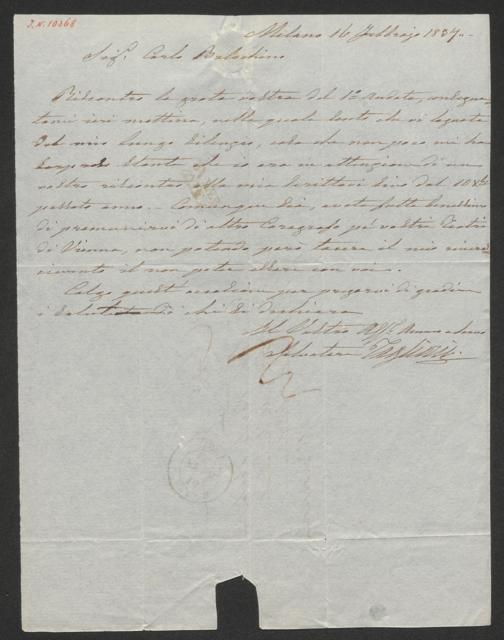 J.N. 10268
Milano 16 Febbrajo 1837.
Sigr. Carlo Balochino
Riscontro la grata vostra del 1º Andte,
tami ieri mattina, nella quale sento che vi lagnate
del mio lungo silenzio, cosa che non poco mi ha
sorpreso stante ch' io ero in attenzione di un
vostro riscontro alla mia scrittavi sino dal 10
passato anno. Comunque sia, avete fatto benissimo
di premunirvi di altro Coregrafo pei vostri Teatri
di Vienna, non potendo però tacere il mio
il non poter essere con voi.
Colgo quest' occasione per pregarvi di gradire
i saluti di chi si dichiara
Il Vostro Affo.
Salvatore Taglioni